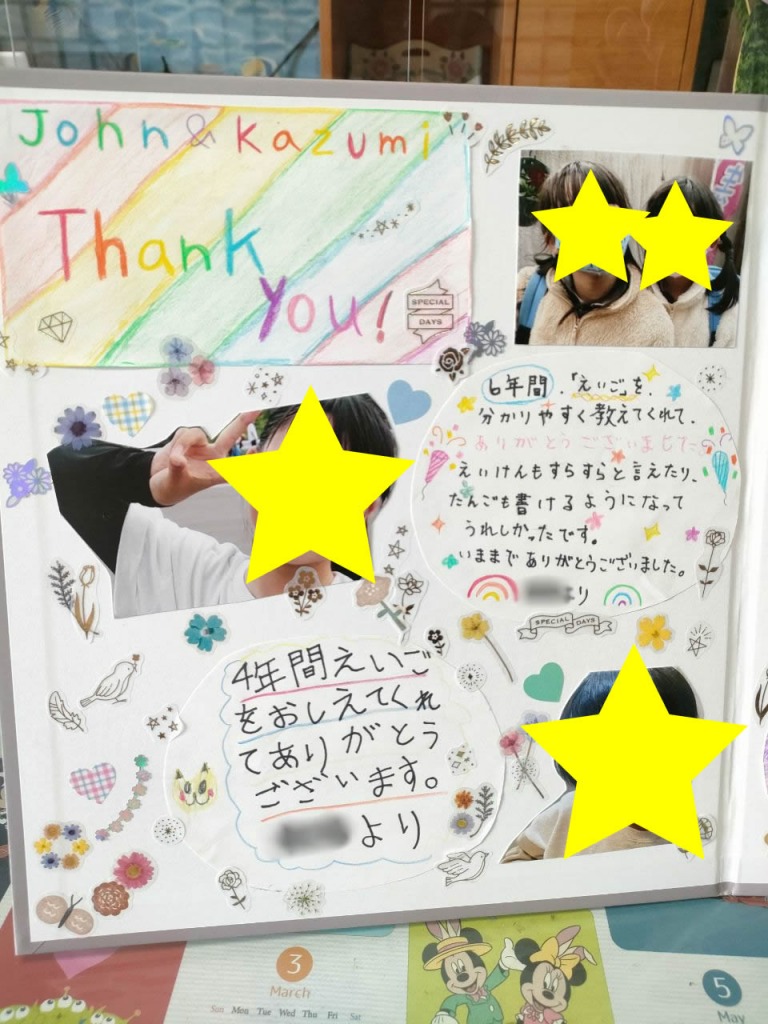 John & Kazumi
Thank
You!
SPECIAL
DAYS
6年間、「えいご」を、
分かりやすく教えてくれて、
ありがとうございました。
えいけんもすらすらと言えたり、
たんごも書けるようになって
うれしかったです。
いままでありがとうございました。
より
SPECIAL DAYS
4年間えいご
をおしえてくれ
てありがとう
ございます。
より
3
March
Sun Mon Tue Wed Thu Fri Sat
5
May